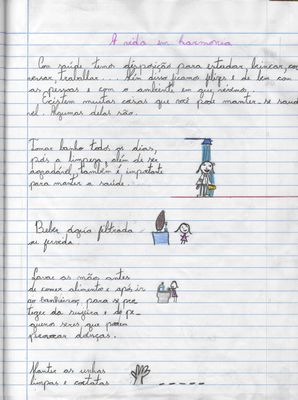 A vida em harmonia
Com saúde temos disposição para estudar, brincar, con
versar, trabalhar... Além disso ficamos felizes e de bem com
as pessoas e com o ambiente em que vivemos.
Existem muitas coisas que você pode manter-se saudá
vel. Algumas delas são.
Tomar banho todos os dias,
pois a limpeza, além de ser
agradável, também é importante
para manter a saúde.
Beber água filtrada
ou fervida.
Lavar as mãos antes
de comer alimentos e após ir
ao banheiro, para se pro
teger da sujeira e de pe
quenos seres que podem
provocar doenças.
Manter as unhas
limpas e cortadas